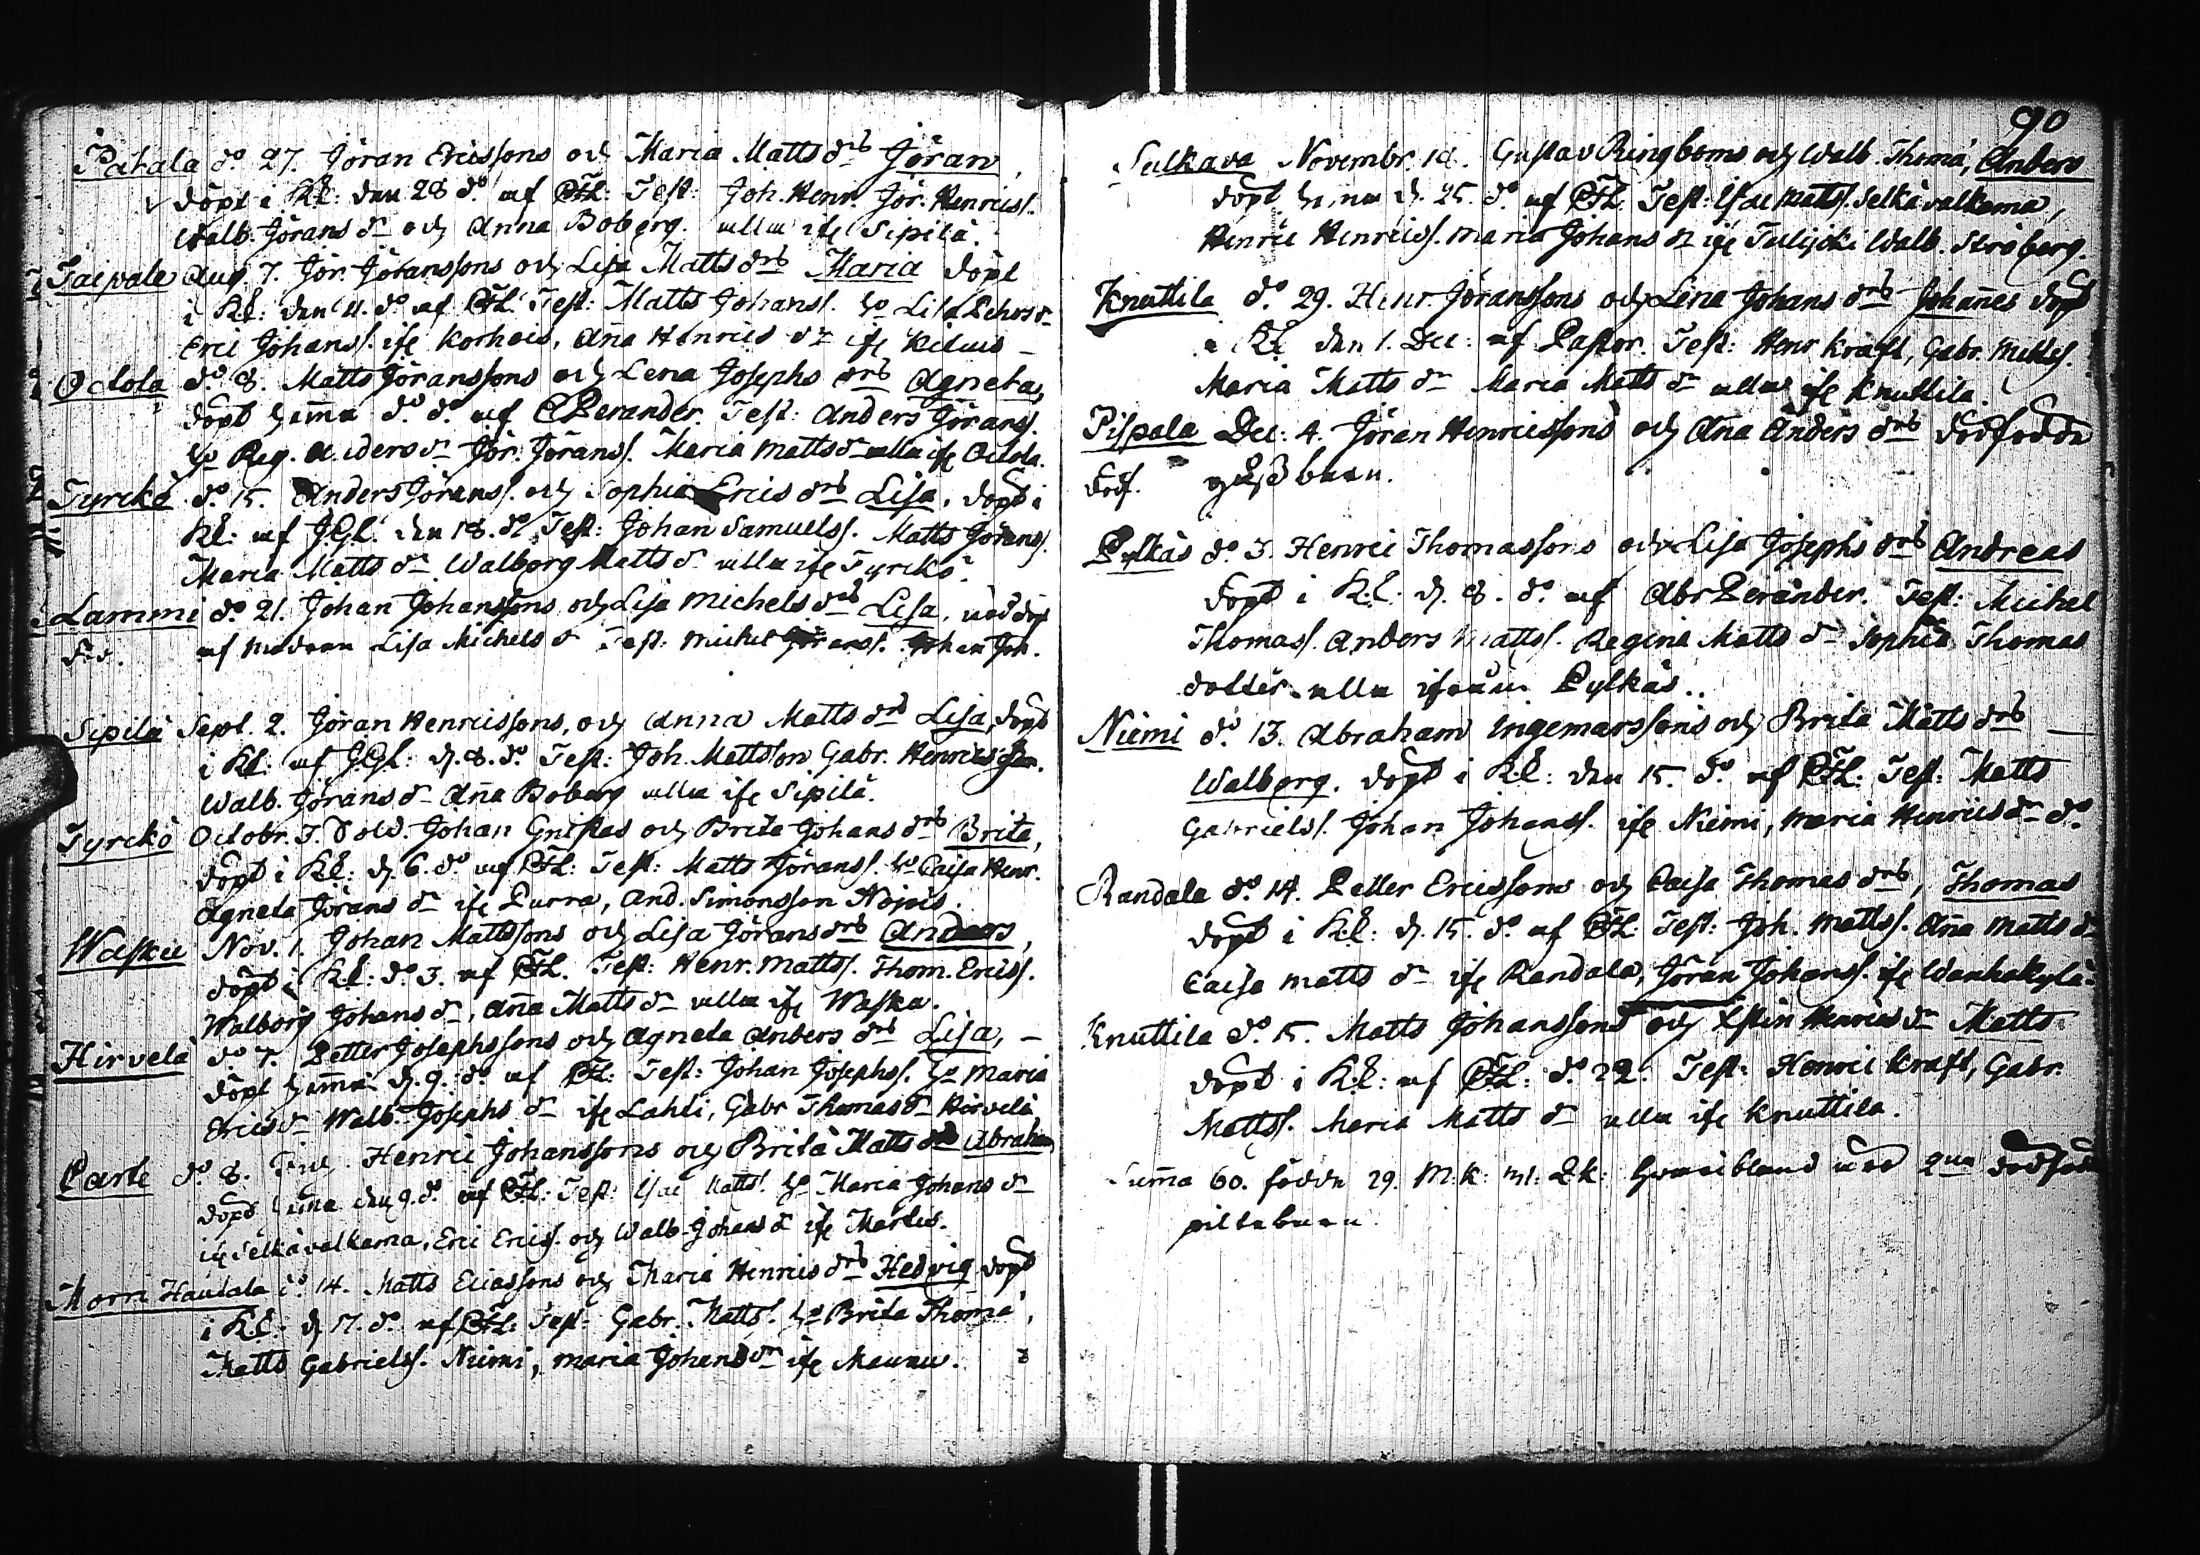 Pahala d:o 27. Jöran Ericssons och Maria Matts drs Jöran,
döpt i Kk: den 28 d:o af Test: Joh. Henr. Jör. Henrics.
Walb. Jörans dr och Anna Boberg. alla ifr Sipilä.
Taipale Aug. 7. Jör. Johanssons och Lisa Matts drs Maria döpt
i Kk: den 11. d:o af Test: Matts Johans. Lisa
Eric Johans. ifr Korhois, Aña Henrics dr ifr
Ockola d:o 8. Matts Jöranssons och Lena Josephs drs Agneta,
döpt hem̃a d:o d:o af Perander. Test: Anders Jörans.
Reg. Anders dr Jör. Jörans. Maria Matts dr alla ifr Ockola.
Tyrckö d:o 15. Anders Jörans. och Sophia Erics drs Lisa, döpt i
Kk: af J.Gl. den 18. d:o Test: Johan Samuels. Matts Jörans.
Maria Matts dr Walborg Matts dr alla ifr Tyrckö.
Lammi d:o 21. Johan Johanssons och Lisa Michels drs Lisa, nöddöpt
död. af modren Lisa Michels dr Test: Michel Jörans. Johan Joh.
Sipilä Sept. 2. Jöran Henricssons, och Anna Matts drs Lisa, döpt
i Kk: af J.Gl: d. 8. d:o Test: Joh. Mattsson Gabr. Henrics son.
Walb. Jörans dr Aña Boberg alla ifr Sipilä.
Tyrckö Octobr. 3. Sold. Johan Gnistas och Brita Johans drs Brita,
döpt i Kk: d. 6. d:o af Test: Matts Jörans. Caisa Henr.
Agneta Jörans dr ifr Purra, And. Simonsson Nojois.
Wasku Nov. 1. Johan Mattssons och Lisa Jörans drs Anders,
döpt i Kk: d:o 3. af Test: Henr. Matts. Thom. Erics.
Walborg Johans dr, Aña Matts dr alla ifr Waska.
Hirvelä d:o 7. Petter Josephssons och Agneta Anders drs Lisa, –
döpt hem̃a d. 9. d:o af Test: Johan Josephs. Maria
Erics dr Walb. Josephs dr ifr Lahti, Gabr Thomas dr Hirvelä.
Parte d:o 8. Henric Johanssons och Brita Matts drs Abraham
döpt hem̃a den 9. d:o af Test: Isac Matts. Maria Johans dr
ifr Selkävalkama, Eric Erics. och Walb. Johans dr ifr Martus.
Morri Hautala d:o 14. Matts Eliassons och Maria Henrics drs Hedvig döpt
i Kk: d. 17. d:o af Test: Gabr. Matts. Brita Thomæ,
Matts Gabriels. Niemi, Maria Johans dr ifr Maunu.
90
Sulkava Novembr. 18. Gustav Ringboms och Walb. Thomæ, Anders
döpt hem̃a d. 25. d:o af Test: Isac Matts. Selkävalkama,
Henric Henrics. Maria Johans dr ifr Tulijoki Walb. Ströberg.
Knuttila d:o 29. Henr. Jöranssons och Lena Johans drs Johañes döpt
i Kk den 1. Dec: af Pastor. Test: Henr Kraft, Gabr. Matts.
Maria Matts dr Maria Matts dr alla ifr Knuttila.
Pispala Dec: 4. Jöran Henricssons och Aña Anders drs dödfödda
död. barn.
Pylkäs d:o 3. Henric Thomassons och Lisa Josephs drs Andreas
döpt i K.k: d. 8. d:o af Abr Perander. Test: Michel
Thomas. Anders Matts. Regina Matts dr Sophia Thomas
dotter alla ifrån Pylkäs..
Niemi d:o 13. Abraham Ingemarssons och Brita Matts drs –
Walborg. döpt i K.k: den 15. d:o af Test: Matts
Gabriels. Johan Johans. ifr Niemi, Maria Henrics dr d:o
Randala d:o 14. Petter Ericssons och Caisa Thomas drs, Thomas
döpt i K.k: d. 15. d:o af Test: Joh. Matts. Aña Matts dr
Caisa Matts dr ifr Randala, Jöran Johans. ifr Wanhakylä.
Knuttila d:o 15. Matts Johanssons och Xstin Henrics dr Matts
döpt i K.k: af d:o 22. Test: Henric Kraft, Gabr.
Matts. Maria Matts dr alla ifr Knuttila.
Sum̃a 60. födde 29. M.k: Q.k: hvaribland dödfödt